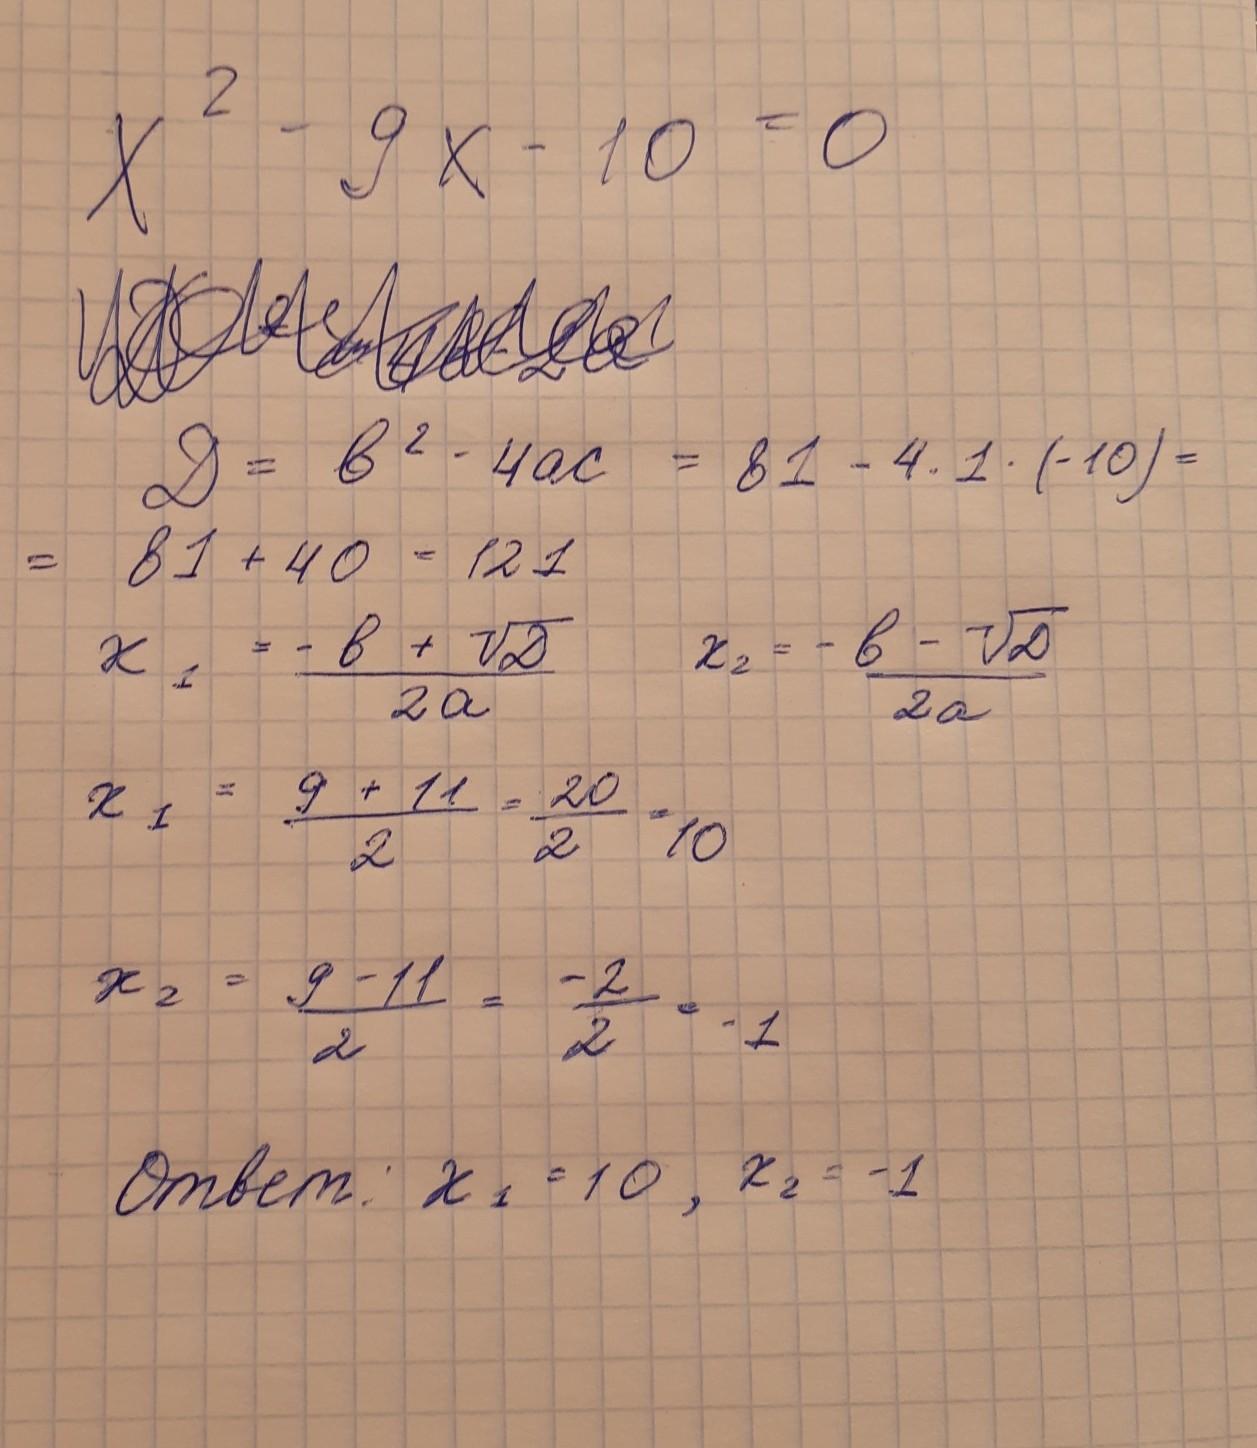 x² - 9x - 10 = 0
D = в² - 4ac = 81 - 4 · 1 · (-10) =
= 81 + 40 = 121
x₁ = (-в + √D)/2a x₂ = (-в - √D)/2a
x₁ = (9 + 11)/2 = 20/2 = 10
x₂ = (9 - 11)/2 = -2/2 = -1
Ответ: x₁ = 10, x₂ = -1